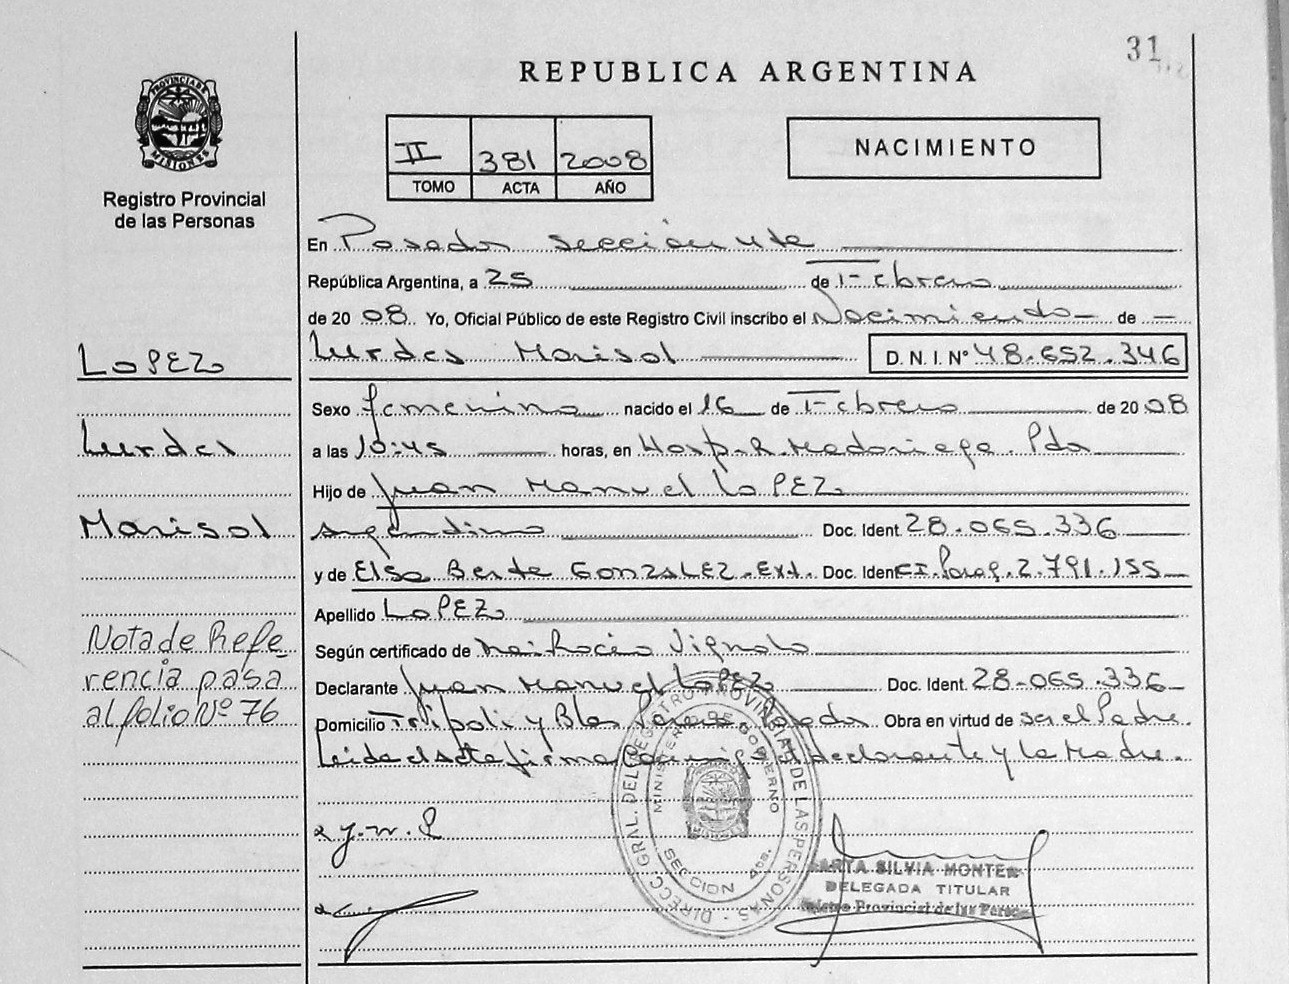 31
REPUBLICA ARGENTINA
PROVINCIA DE MISIONES
Registro Provincial
de las Personas
II 381 2008
TOMO ACTA AÑO
NACIMIENTO
En Posadas Sección 4ta
República Argentina, a 25 de Febrero
de 2008 Yo, Oficial Público de este Registro Civil inscribo el Nacimiento de
LOPEZ
Lurdes Marisol D. N. I. Nº 48.652.346
Sexo femenino nacido el 16 de Febrero de 2008
Lurdes
a las 10:45 horas, en Hosp. R. Madariaga. Pdas
Hijo de Juan Manuel LOPEZ
Marisol
argentino Doc. Ident. 28.065.336
y de Elsa GONZALEZ. Ext. Doc. Iden CI. Parag. 2.791.155
Apellido LOPEZ
Nota de Refe-
rencia pasa
al folio Nº 76
Según certificado de Rocio Vignolo
Declarante Juan Manuel LOPEZ Doc. Ident. 28.065.336
Domicilio Tripoli y Blas Posadas Obra en virtud de ser el Padre.
Leida el Acta firma Conmigo el declarante y la Madre.
J.M.L
DIRECC. GRAL. DEL REGISTRO PROVINCIAL DE LAS PERSONAS
MINISTERIO DE GOBIERNO
SECCION 4ta.
MARTA SILVIA MONTE
DELEGADA TITULAR
Registro Provincial de las Personas